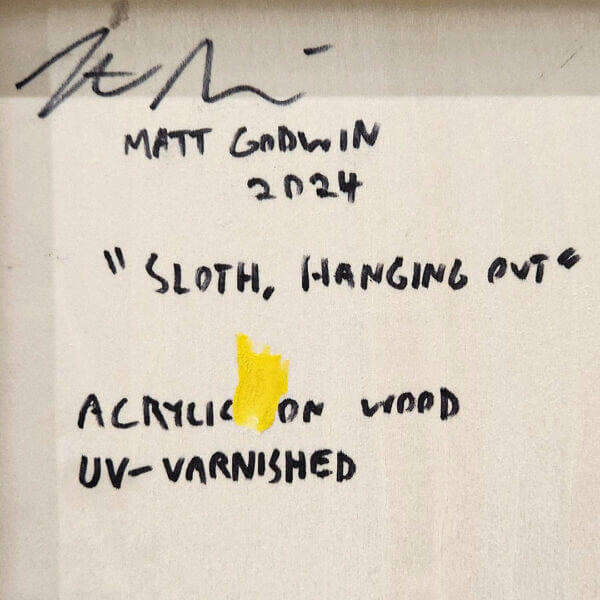 MATT GODWIN
2024
"SLOTH, HANGING OUT"
ACRYLIC ON WOOD
UV-VARNISHED